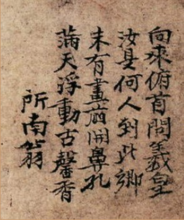 向來俯首問羲皇
汝是何人到此鄉
未有畫前開鼻孔
滿天浮動古馨香
所南翁